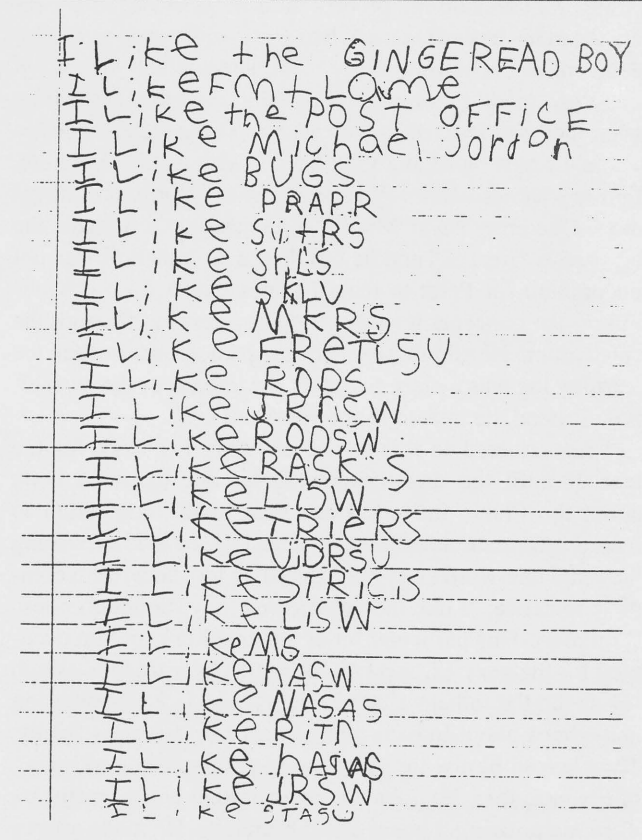 I Like the GINGEREAD BOY
I Like FM+LAme
I Like the POST OFFICE
I Like Michael Jordan
I Like BUGS
I Like PRAPR
I Like SiitRS
I Like ShLS
I Like SKLV
I Like MKRS
I Like FReTLSU
I Like ROPS
I Like JRhSW
I Like RODSW
I Like RASKS
I Like LiSW
I Like TRieRS
I Like UDRSU
I Like STRiCiS
I Like LiSW
I Like MS
I Like hASW
I Like NASAS
I Like RiTh
I Like hASWAS
I Like JRSW
I Like STASW